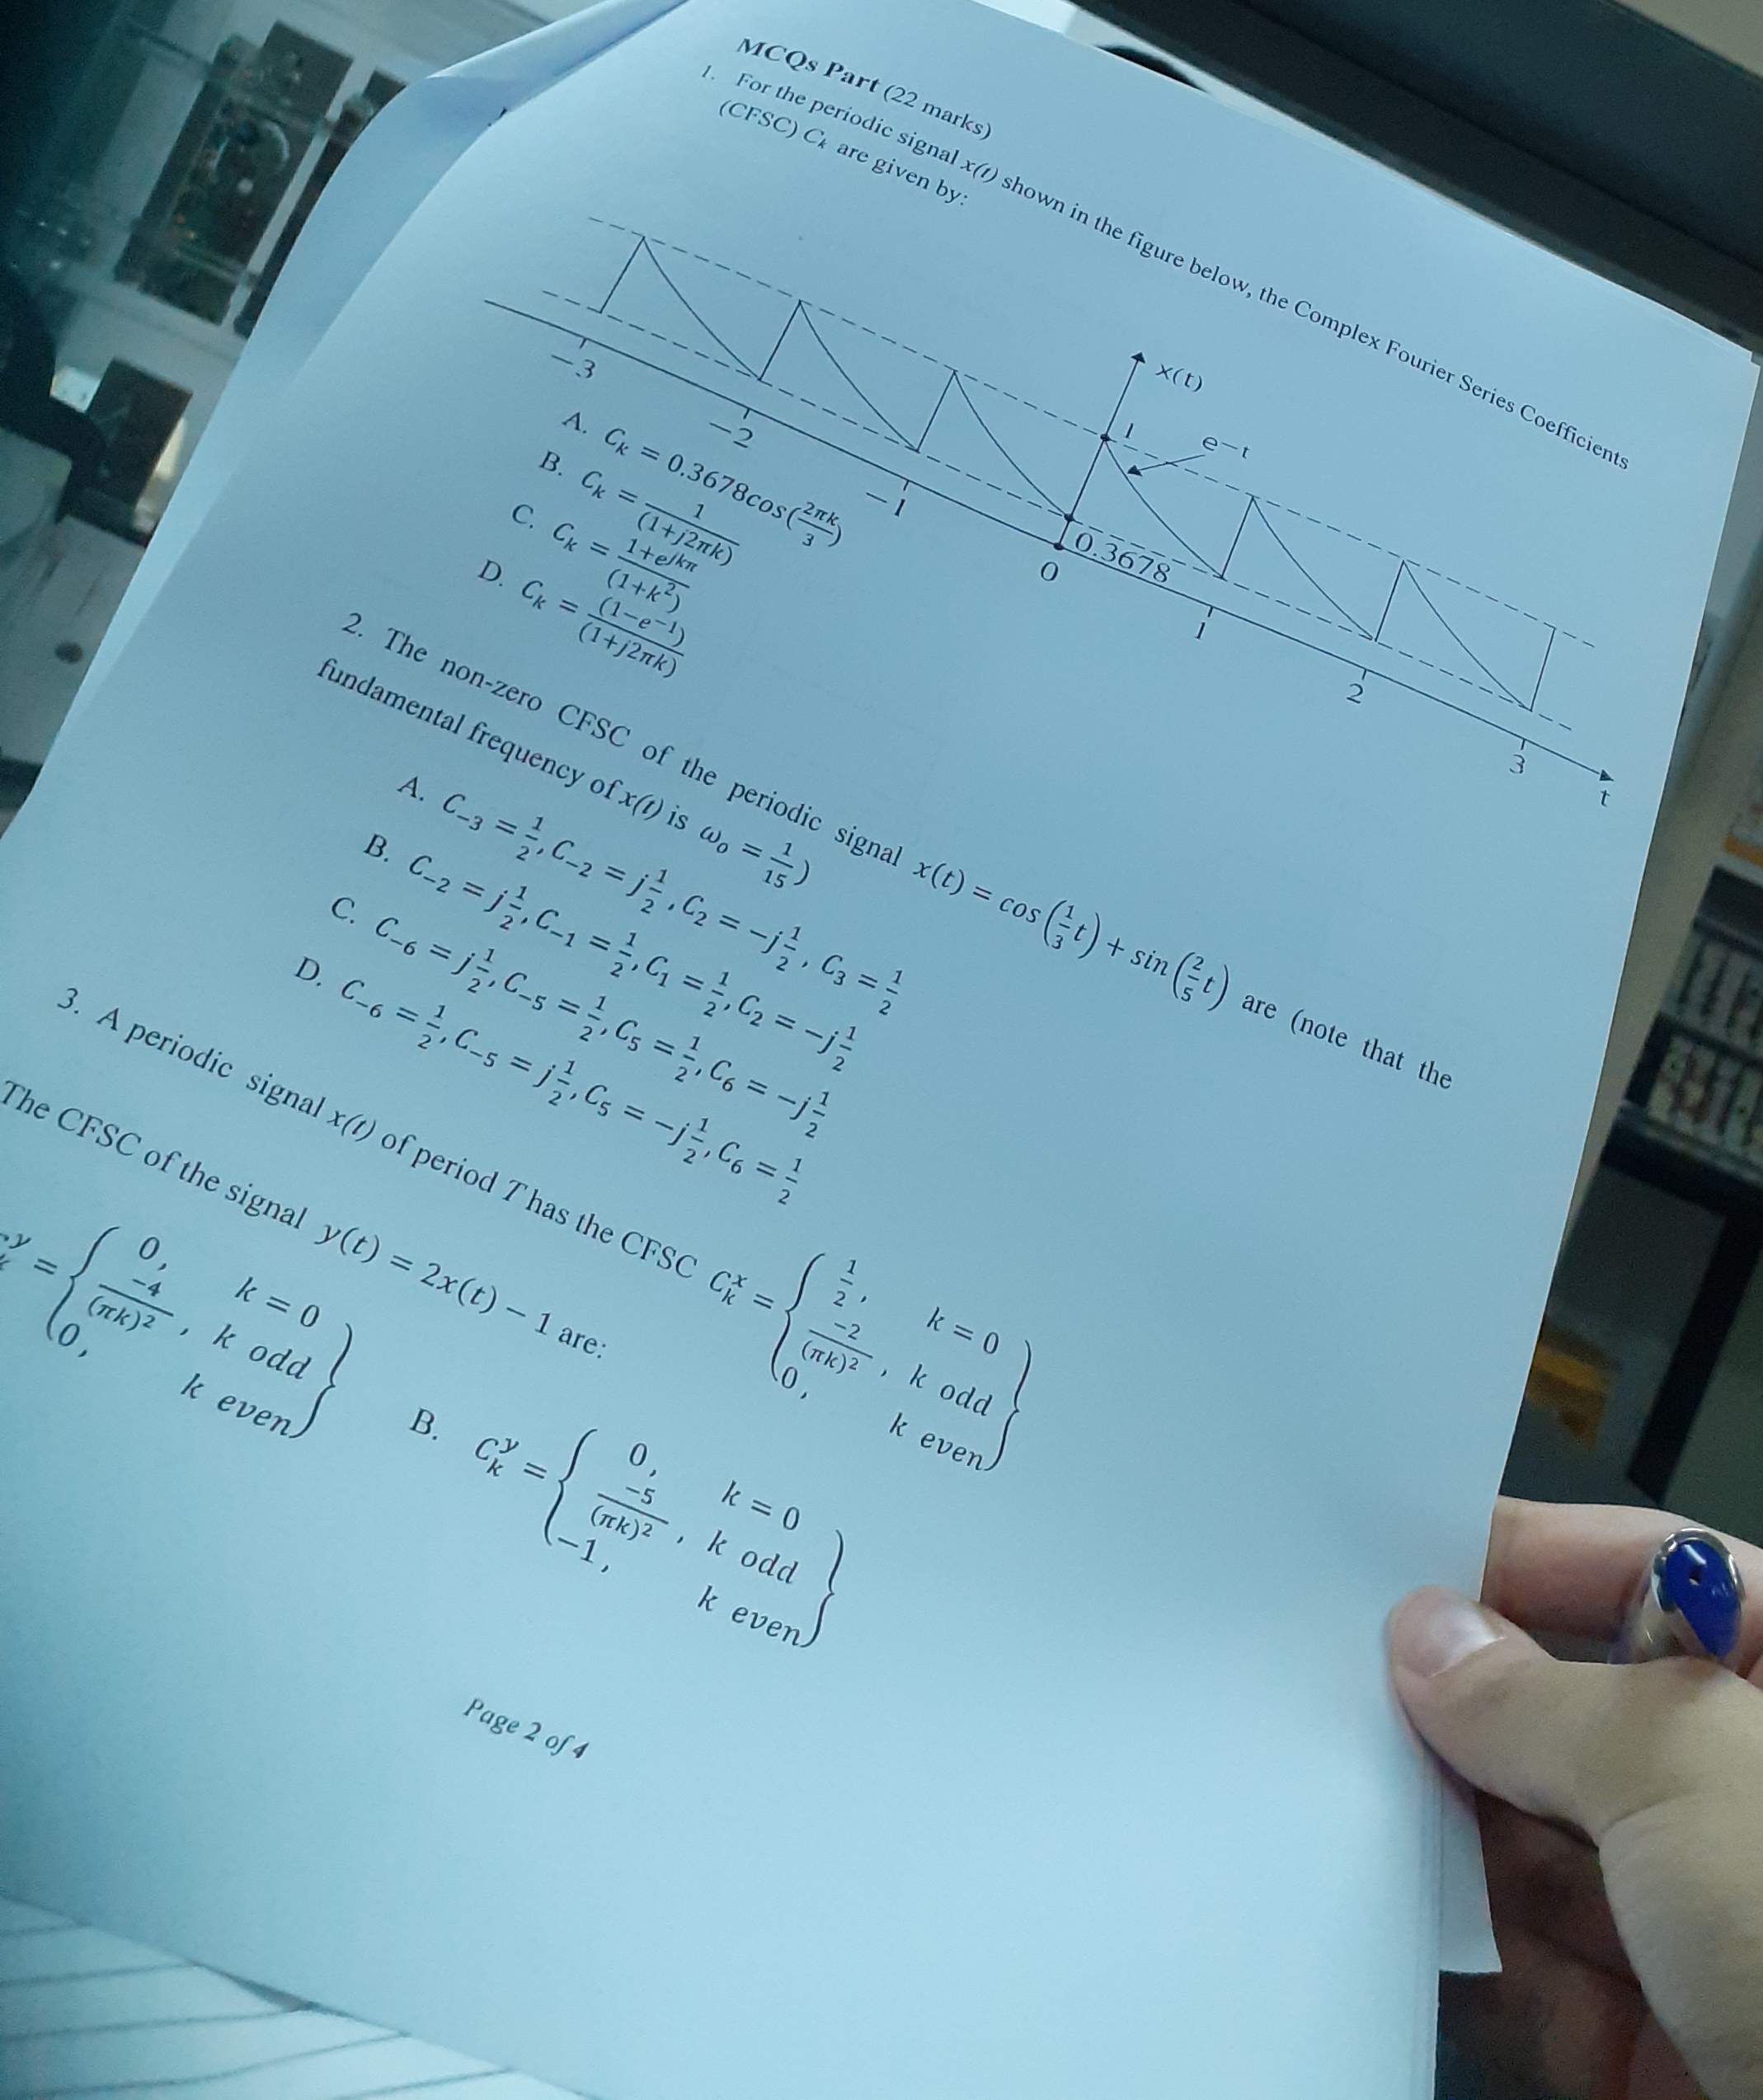 MCQs Part (22 marks)
1. For the periodic signal x(t) shown in the figure below, the Complex Fourier Series Coefficients
(CFSC) Cₖ are given by:
x(t)
1
e−t
0.3678
−3 −2 −1 0 1 2 3 t
A. Cₖ = 0.3678cos(2πk/3)
B. Cₖ = 1/(1+j2πk)
C. Cₖ = (1+e^{jkπ})/(1+k²)
D. Cₖ = (1−e⁻¹)/(1+j2πk)
2. The non-zero CFSC of the periodic signal x(t) = cos(1/3 t) + sin(2/5 t) are (note that the
fundamental frequency of x(t) is ωₒ = 1/15)
A. C₋₃ = 1/2, C₋₂ = j1/2, C₂ = −j1/2, C₃ = 1/2
B. C₋₂ = j1/2, C₋₁ = 1/2, C₁ = 1/2, C₂ = −j1/2
C. C₋₆ = j1/2, C₋₅ = 1/2, C₅ = 1/2, C₆ = −j1/2
D. C₋₆ = 1/2, C₋₅ = j1/2, C₅ = −j1/2, C₆ = 1/2
3. A periodic signal x(t) of period T has the CFSC Cₖˣ = { 1/2, k = 0
−2/(πk)², k odd
0, k even }
The CFSC of the signal y(t) = 2x(t) − 1 are:
y = { 0, k = 0
−4/(πk)², k odd
0, k even }
B. Cₖʸ = { 0, k = 0
−5/(πk)², k odd
−1, k even }
Page 2 of 4